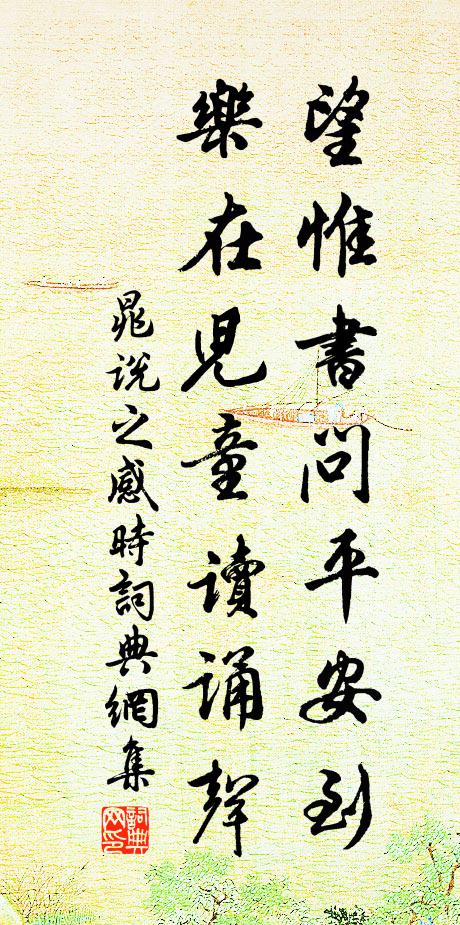 望惟書問平安到
樂在兒童讀誦聲
晁說之感時詞典網集
詞典网印